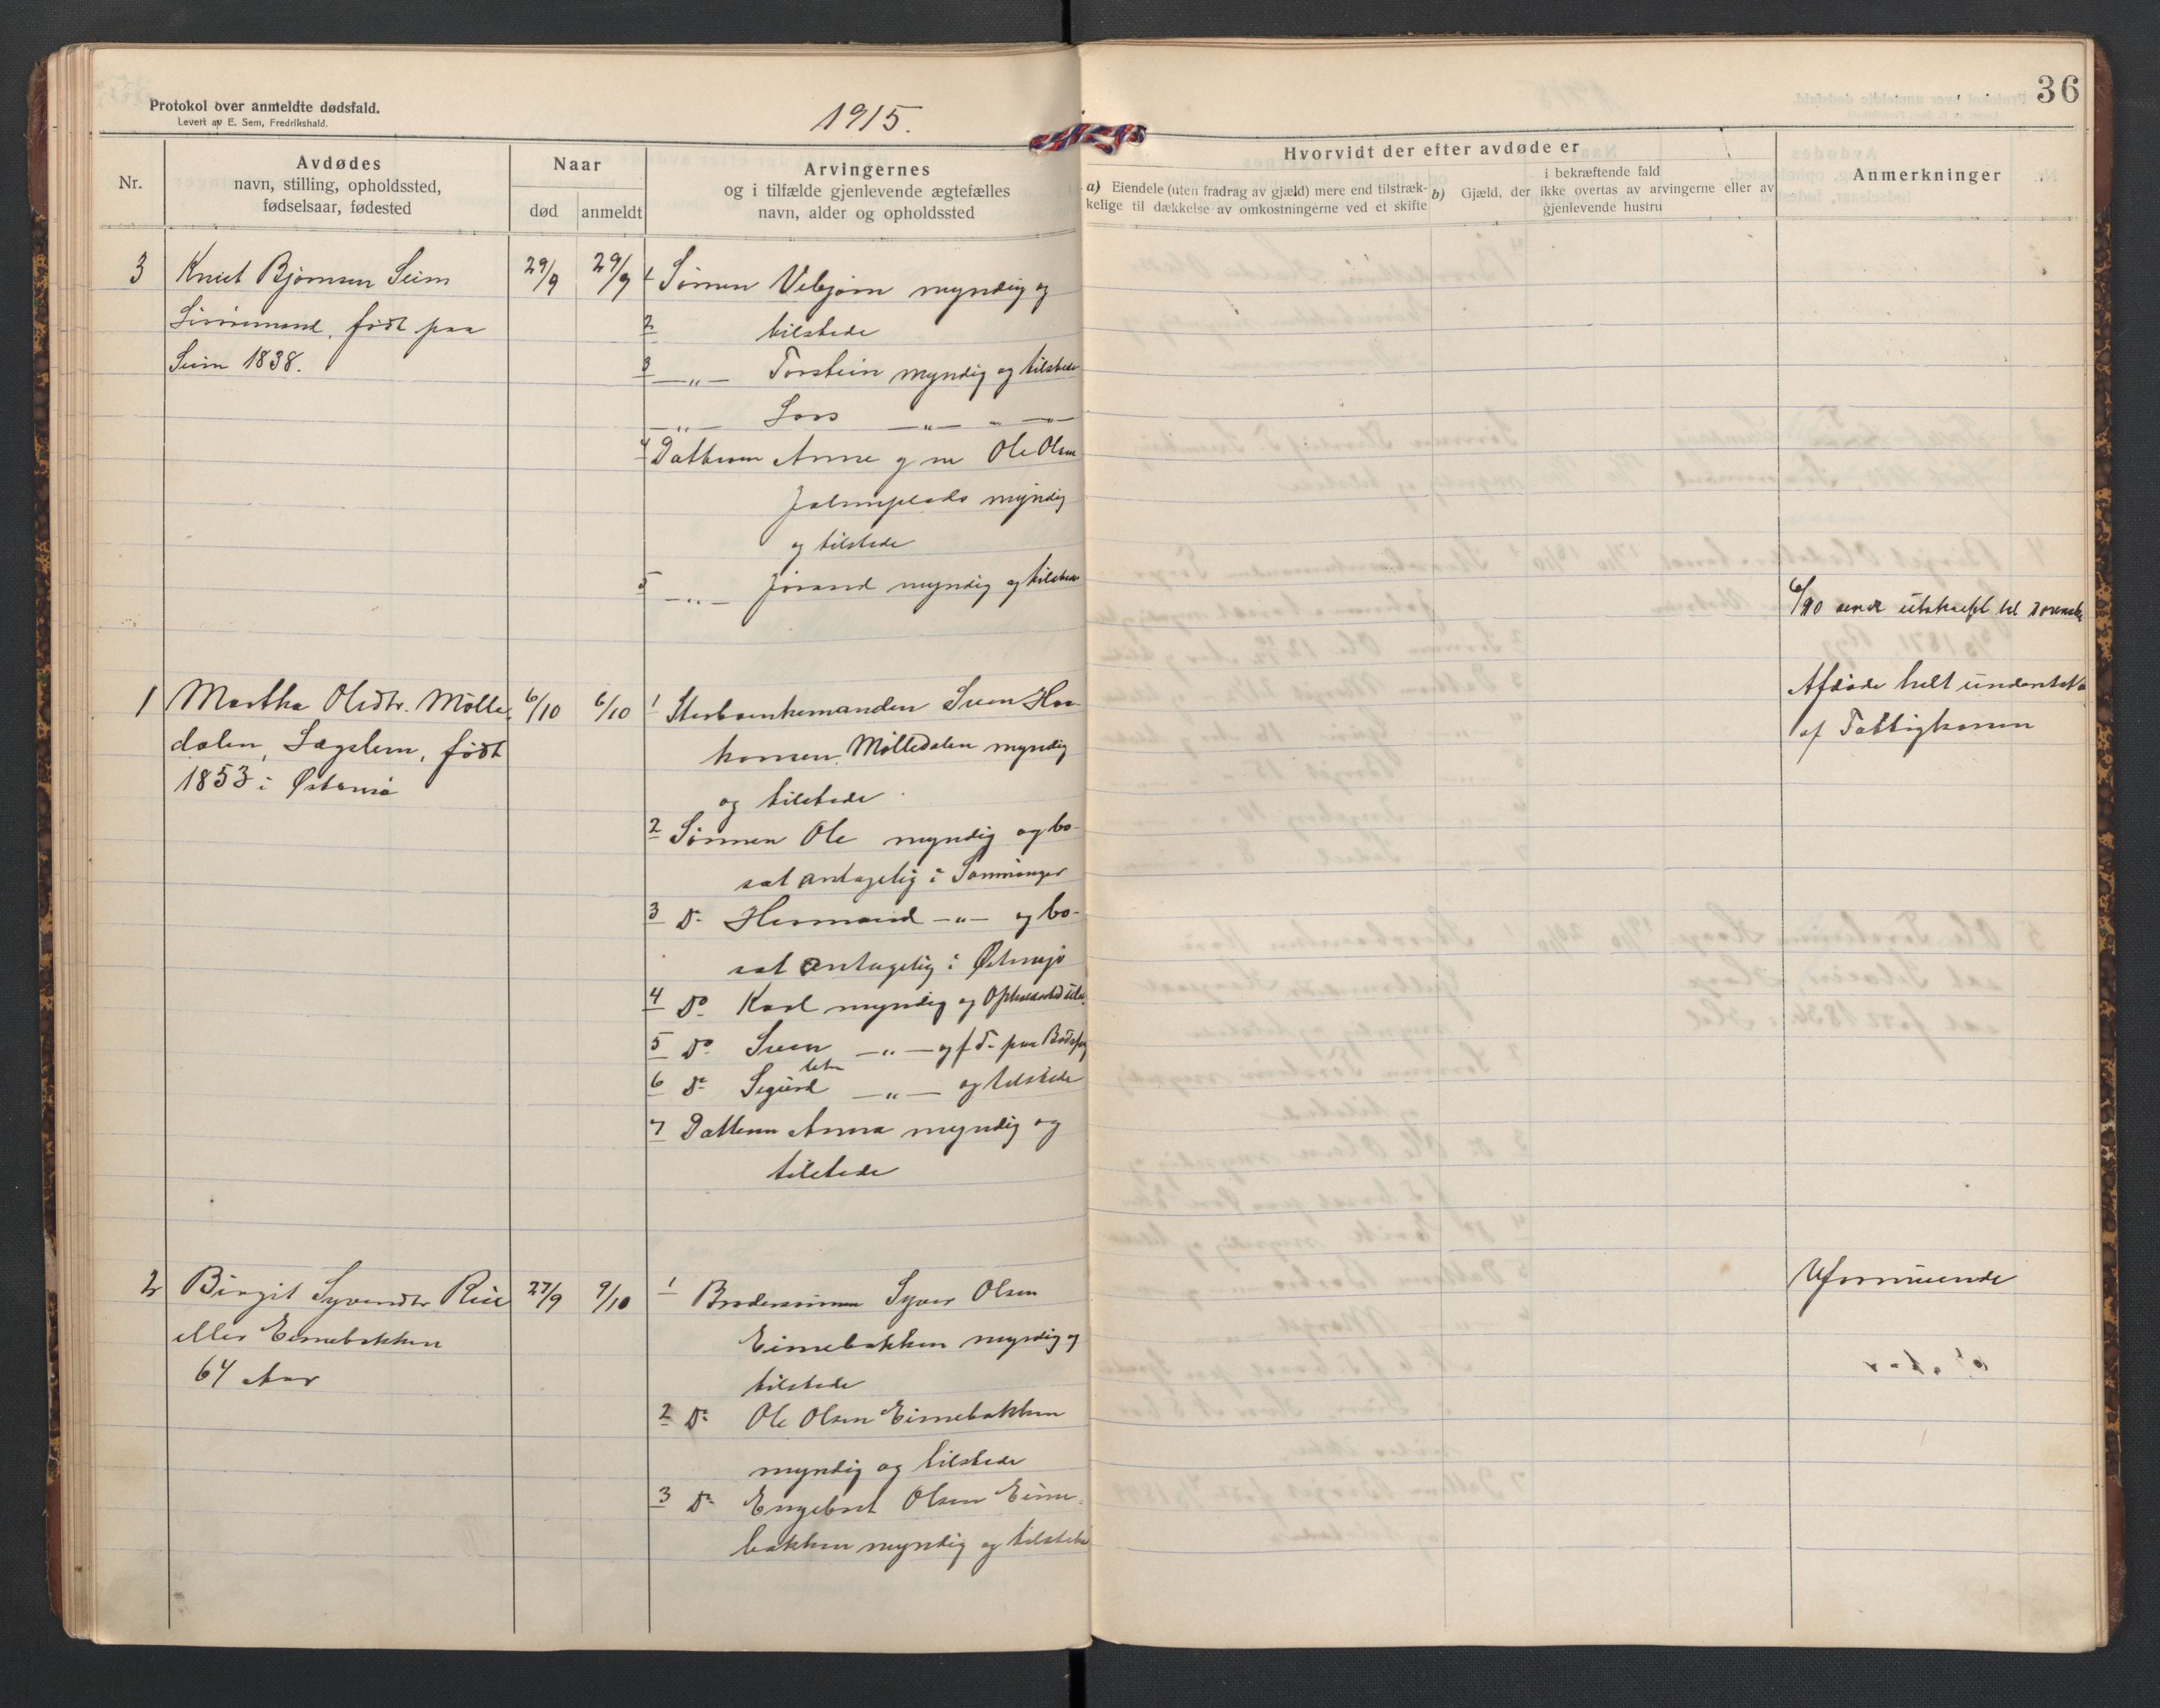 Protokol over anmeldte dødsfald.
Levert av E. Sem, Fredrikshald.
1915.
36
Nr.
Avdødes
navn, stilling, opholdssted,
fødselsaar, fødested
Naar
død
anmeldt
Arvingernes
og i tilfælde gjenlevende ægtefælles
navn, alder og opholdssted
Hvorvidt der efter avdøde er
a) Eiendele (uten fradrag av gjæld) mere end tilstræk-
kelige til dækkelse av omkostningerne ved et skifte
i bekræftende fald
b) Gjæld, der ikke overtas av arvingerne eller av
gjenlevende hustru
Anmerkninger
3
Knut Bjørnsen Seim
født paa
Seim 1838.
29/9
29/9
1 Sønnen Vebjørn myndig og
2 tilstede
3 —„— Torstein myndig og tilstede
—„— Lars —„— „ —„—
4 Datteren Anne g m Ole Olsen
myndig
og tilstede
5 —„— Jørand myndig og tilstede
6/10 sendt utskrift til
1
Martha Olsdtr. Mølle-
dalen, Lægslem, født
1853 i Østensø
6/10
6/10
1 Sterboenkemanden Sven Haa-
konsen Mølledalen myndig
og tilstede
2 Sønnen Ole myndig og bo-
sat antagelig i
3 Do Hermand —„— og bo-
sat antagelig i Østensjø
4 Do Karl myndig og Opholdssted
5 Do Sven —„— og f. T. paa
6 Do Sigurd —„— og tilstede
7 Datteren Anna myndig og
tilstede
Afdøde helt understøttet
af Fattigkassen
2
Birgit Syversdtr
eller Eimebakken
64 Aar
27/9
9/10
1 Brodersønnen Syver Olsen
Eimebakken myndig og
tilstede
2 Do Ole Olsen Eimebakken
myndig og tilstede
3 Do Engebret Olsen Eime-
bakken myndig og tilstede
Uformuende